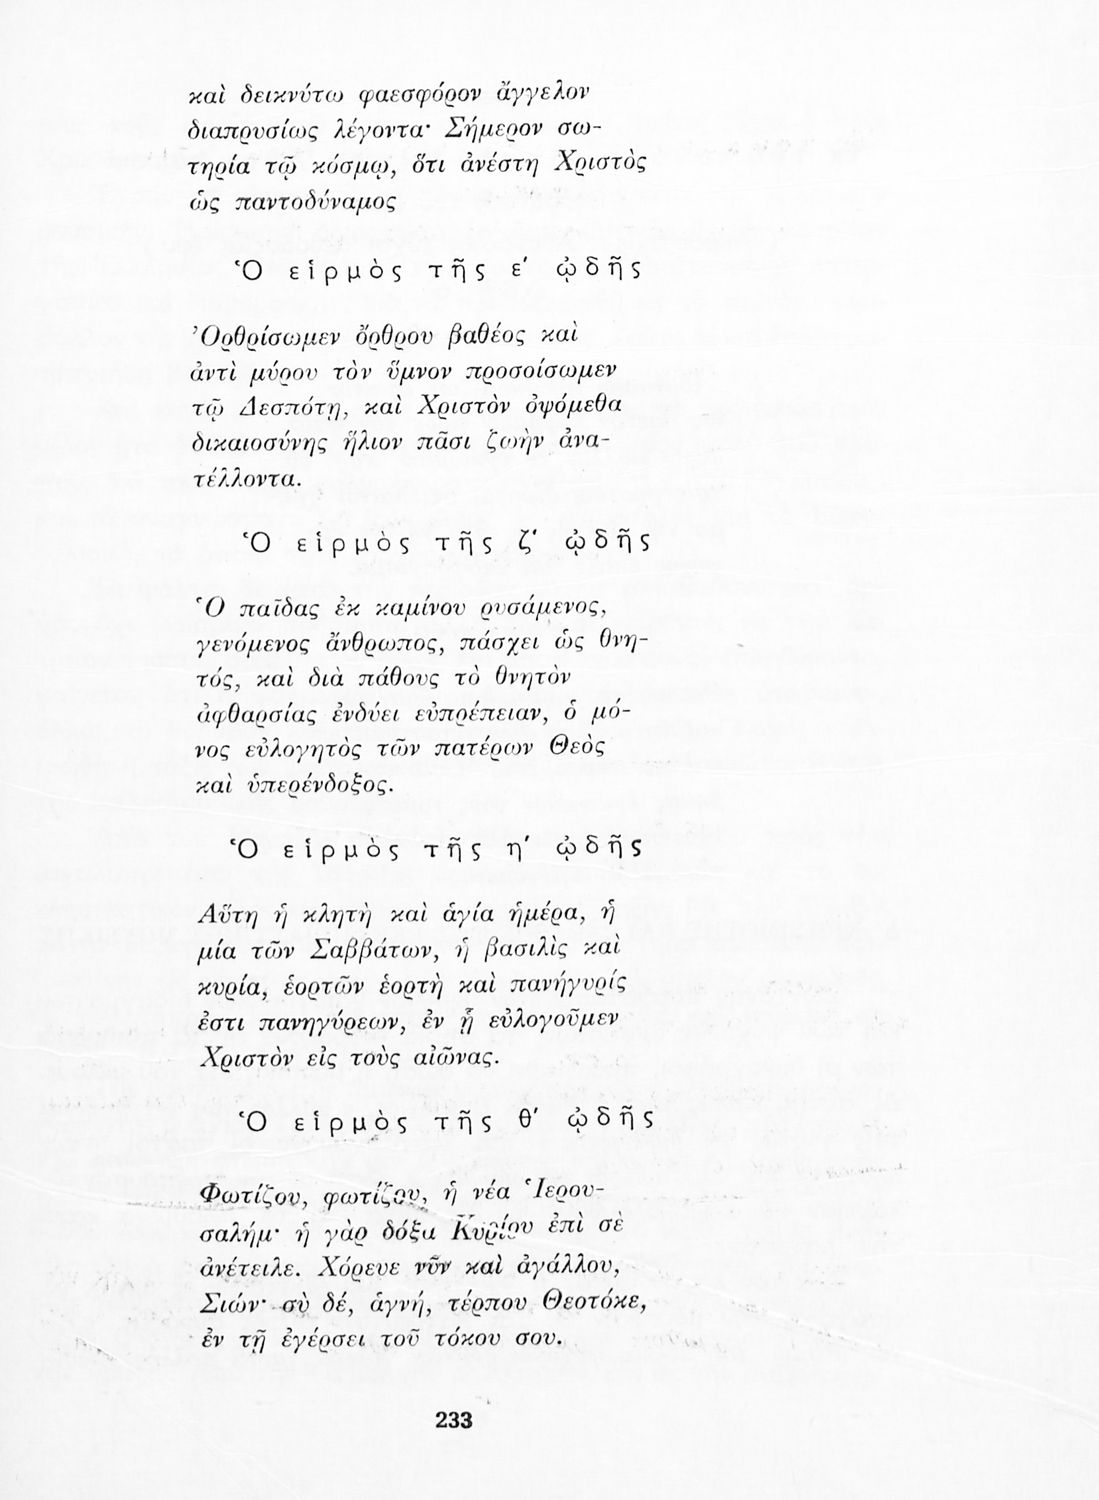 καὶ δεικνύτω φαεσφόρον ἄγγελον
διαπρυσίως λέγοντα· Σήμερον σω-
τηρία τῷ κόσμῳ, ὅτι ἀνέστη Χριστὸς
ὡς παντοδύναμος
Ὁ εἱρμὸς τῆς ε΄ ᾠδῆς
Ὀρθρίσωμεν ὄρθρου βαθέος καὶ
ἀντὶ μύρου τὸν ὕμνον προσοίσωμεν
τῷ Δεσπότῃ, καὶ Χριστὸν ὀψόμεθα
δικαιοσύνης ἥλιον πᾶσι ζωὴν ἀνα-
τέλλοντα.
Ὁ εἱρμὸς τῆς ζ΄ ᾠδῆς
Ὁ παῖδας ἐκ καμίνου ρυσάμενος,
γενόμενος ἄνθρωπος, πάσχει ὡς θνη-
τός, καὶ διὰ πάθους τὸ θνητὸν
ἀφθαρσίας ἐνδύει εὐπρέπειαν, ὁ μό-
νος εὐλογητὸς τῶν πατέρων Θεὸς
καὶ ὑπερένδοξος.
Ὁ εἱρμὸς τῆς η΄ ᾠδῆς
Αὕτη ἡ κλητὴ καὶ ἁγία ἡμέρα, ἡ
μία τῶν Σαββάτων, ἡ βασιλὶς καὶ
κυρία, ἑορτῶν ἑορτὴ καὶ πανήγυρίς
ἐστι πανηγύρεων, ἐν ᾗ εὐλογοῦμεν
Χριστὸν εἰς τοὺς αἰῶνας.
Ὁ εἱρμὸς τῆς θ΄ ᾠδῆς
Φωτίζου, φωτίζου, ἡ νέα Ἱερου-
σαλήμ· ἡ γὰρ δόξα Κυρίου ἐπὶ σὲ
ἀνέτειλε. Χόρευε νῦν καὶ ἀγάλλου,
Σιών· σὺ δέ, ἁγνή, τέρπου Θεοτόκε,
ἐν τῇ ἐγέρσει τοῦ τόκου σου.
233